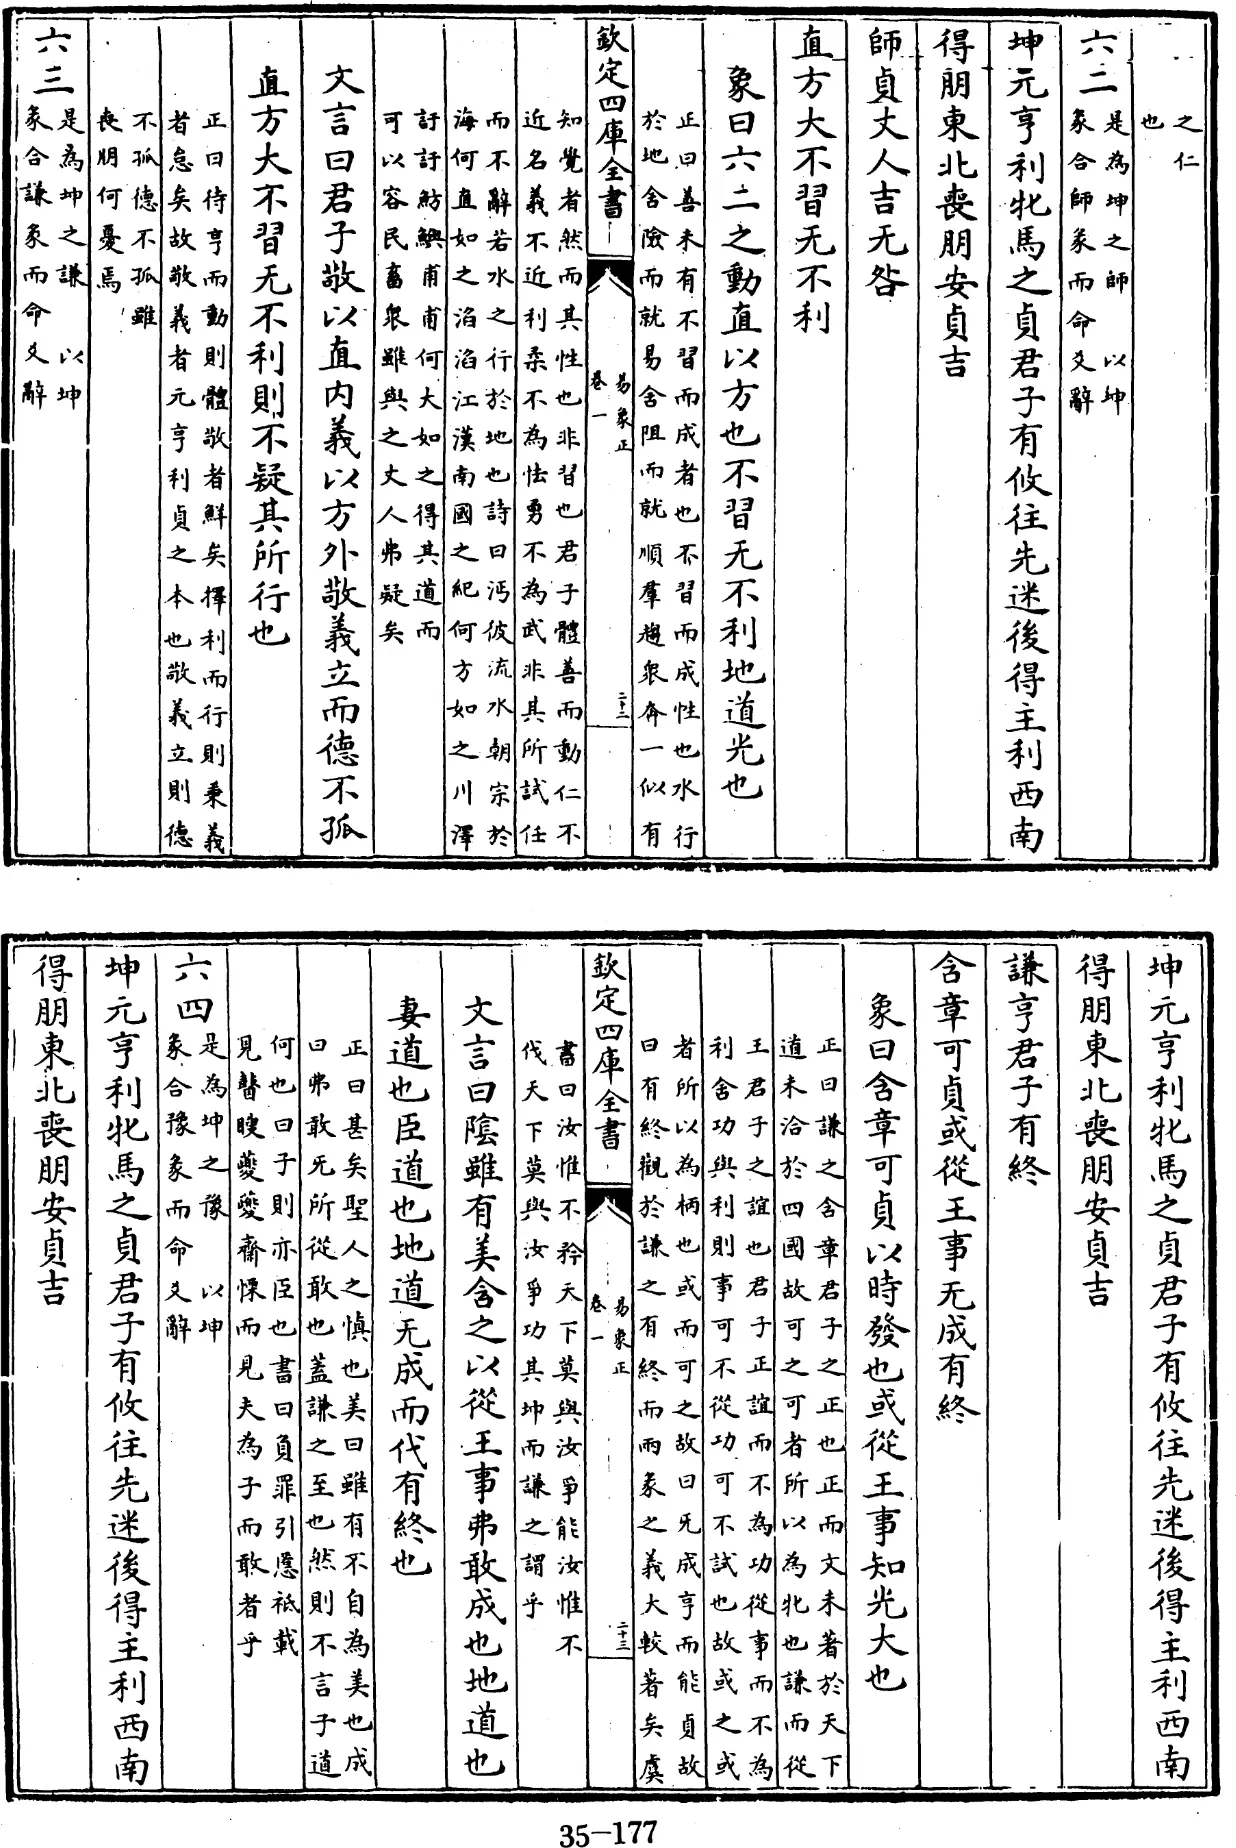 之仁
也
六二
是為坤之師 以坤
彖合師彖而命爻辭
坤元亨利牝馬之貞君子有攸往先迷後得主利西南
得朋東北喪朋安貞吉
師貞丈人吉无咎
直方大不習无不利
象曰六二之動直以方也不習无不利地道光也
正曰善未有不習而成者也不習而成性也水行
於地舍險而就易舍阻而就順羣趨眾奔一似有
欽定四庫全書
易象正
卷一
二十二
知覺者然而其性也非習也君子體善而動仁不
近名義不近利柔不為怯勇不為武非其所試任
而不辭若水之行於地也詩曰沔彼流水朝宗於
海何直如之滔滔江漢南國之紀何方如之川澤
訏訏魴鱮甫甫何大如之得其道而
可以容民畜眾雖與之丈人弗疑矣
文言曰君子敬以直內義以方外敬義立而德不孤
直方大不習无不利則不疑其所行也
正曰待亨而動則體敬者鮮矣擇利而行則秉義
者怠矣故敬義者元亨利貞之本也敬義立則德
不孤德不孤雖
喪朋何憂焉
六三
是為坤之謙 以坤
彖合謙彖而命爻辭
坤元亨利牝馬之貞君子有攸往先迷後得主利西南
得朋東北喪朋安貞吉
謙亨君子有終
含章可貞或從王事无成有終
象曰含章可貞以時發也或從王事知光大也
正曰謙之含章君子之正也正而文未著於天下
道未洽於四國故可之可者所以為牝也謙而從
王君子之誼也君子正誼而不為功從事而不為
利舍功與利則事可不從功可不試也故或之或
者所以為柄也或而可之故曰无成亨而能貞故
曰有終觀於謙之有終而兩彖之義大較著矣虞
欽定四庫全書
易象正
卷一
二十三
書曰汝惟不矜天下莫與汝爭能汝惟不
伐天下莫與汝爭功其坤而謙之謂乎
文言曰陰雖有美含之以從王事弗敢成也地道也
妻道也臣道也地道无成而代有終也
正曰甚矣聖人之慎也美曰雖有不自為美也成
曰弗敢旡所從敢也蓋謙之至也然則不言子道
何也曰子則亦臣也書曰負罪引慝祗載
見瞽瞍夔夔齋慄而見夫為子而敢者乎
六四
是為坤之豫 以坤
彖合豫彖而命爻辭
坤元亨利牝馬之貞君子有攸往先迷後得主利西南
得朋東北喪朋安貞吉
35-177